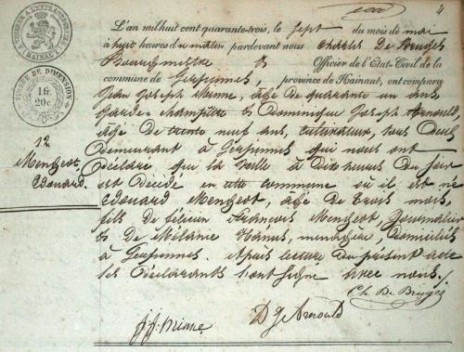 4
L'an mil huit cent quarante-trois, le sept du mois de mai
à huit heures du matin pardevant nous Charles De Bruges
Bourgmestre & Officier de l'Etat-Civil de la
commune de Gerpinnes, province de Hainaut, ont comparu
Jean Joseph âgé de quarante un ans
Garde-champêtre & Dominique Joseph Arnould
âgé de trente neuf ans, cultivateur, tous deux
demeurant à Gerpinnes qui nous ont
déclaré que la veille à dix heures du soir
est décédé en cette commune où il est né
Edouard Mengeot, âgé de trois mois,
fils de François Mengeot, journalier
& de Mélanie Hanus, ménagère, domiciliés
à Gerpinnes. Après lecture du présent acte
les déclarants l'ont signé avec nous.
12
Mengeot
Edouard.
TIMBRE DE DIMENSION
HAINAUT
20c
Ch. De Bruges
D J Arnould